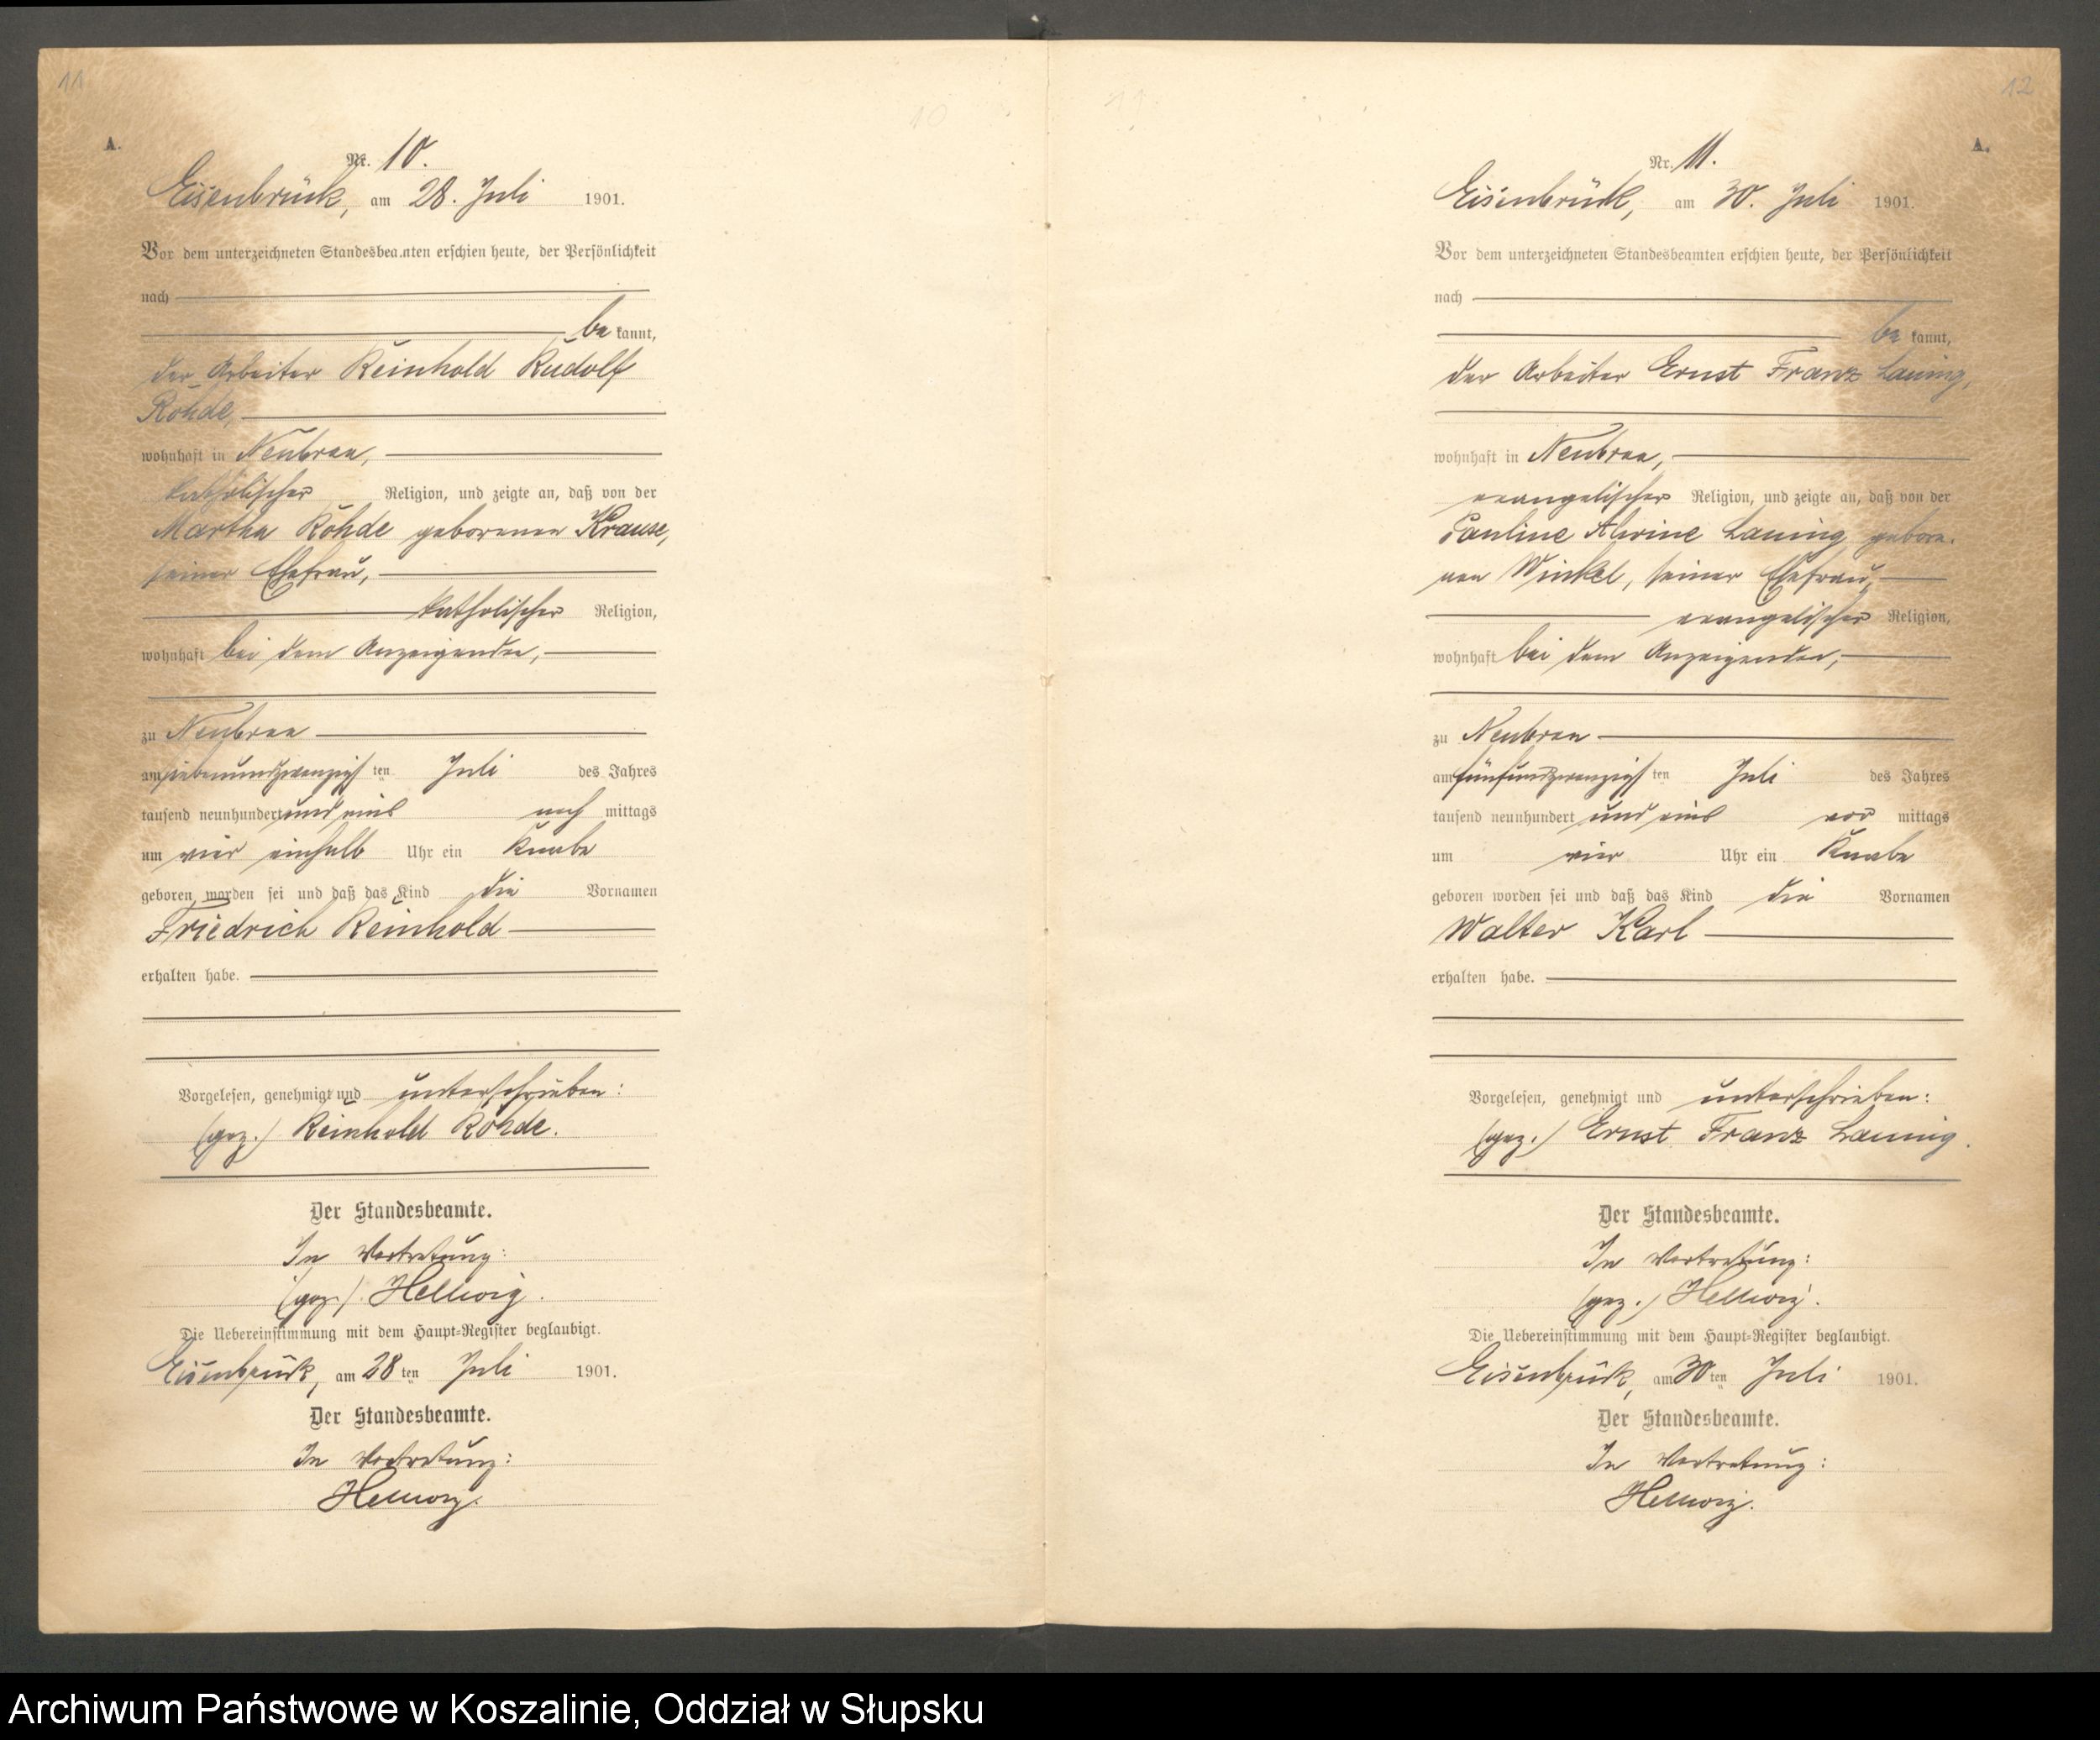 11
A.
Nr. 10.
Eisenbrück, am 28. Juli 1901.
Vor dem unterzeichneten Standesbeamten erschien heute, der Persönlichkeit
nach
be kannt,
der Arbeiter Reinhold Rudolf
Rohde,
wohnhaft in Neubrau,
katholischer Religion, und zeigte an, daß von der
Martha Rohde geborenen Krause,
seiner Ehefrau,
katholischer Religion,
wohnhaft bei dem Anzeigenden,
zu Neubrau
am siebenundzwanzigsten Juli des Jahres
tausend neunhundert und eins nach mittags
um vier einhalb Uhr ein Knabe
geboren worden sei und daß das Kind die Vornamen
Friedrich Reinhold
erhalten habe.
Vorgelesen, genehmigt und unterschrieben:
(gez.) Reinhold Rohde.
Der Standesbeamte.
In Vertretung:
(gez.) Hellwig.
Die Uebereinstimmung mit dem Haupt-Register beglaubigt.
Eisenbrück, am 28ten Juli 1901.
Der Standesbeamte.
In Vertretung:
Hellwig.
10
11
12
A.
Nr. 11.
Eisenbrück, am 30. Juli 1901.
Vor dem unterzeichneten Standesbeamten erschien heute, der Persönlichkeit
nach
be kannt,
der Arbeiter Ernst Franz
wohnhaft in Neubrau,
evangelischer Religion, und zeigte an, daß von der
Pauline Alwine gebore-
nen Winkel, seiner Ehefrau,
evangelischer Religion,
wohnhaft bei dem Anzeigenden,
zu Neubrau
am fünfundzwanzigsten Juli des Jahres
tausend neunhundert und eins vor mittags
um vier Uhr ein Knabe
geboren worden sei und daß das Kind die Vornamen
Walter Karl
erhalten habe.
Vorgelesen, genehmigt und unterschrieben:
(gez.) Ernst Franz
Der Standesbeamte.
In Vertretung:
(gez.) Hellwig.
Die Uebereinstimmung mit dem Haupt-Register beglaubigt.
Eisenbrück, am 30ten Juli 1901.
Der Standesbeamte.
In Vertretung:
Hellwig.
Archiwum Państwowe w Koszalinie, Oddział w Słupsku